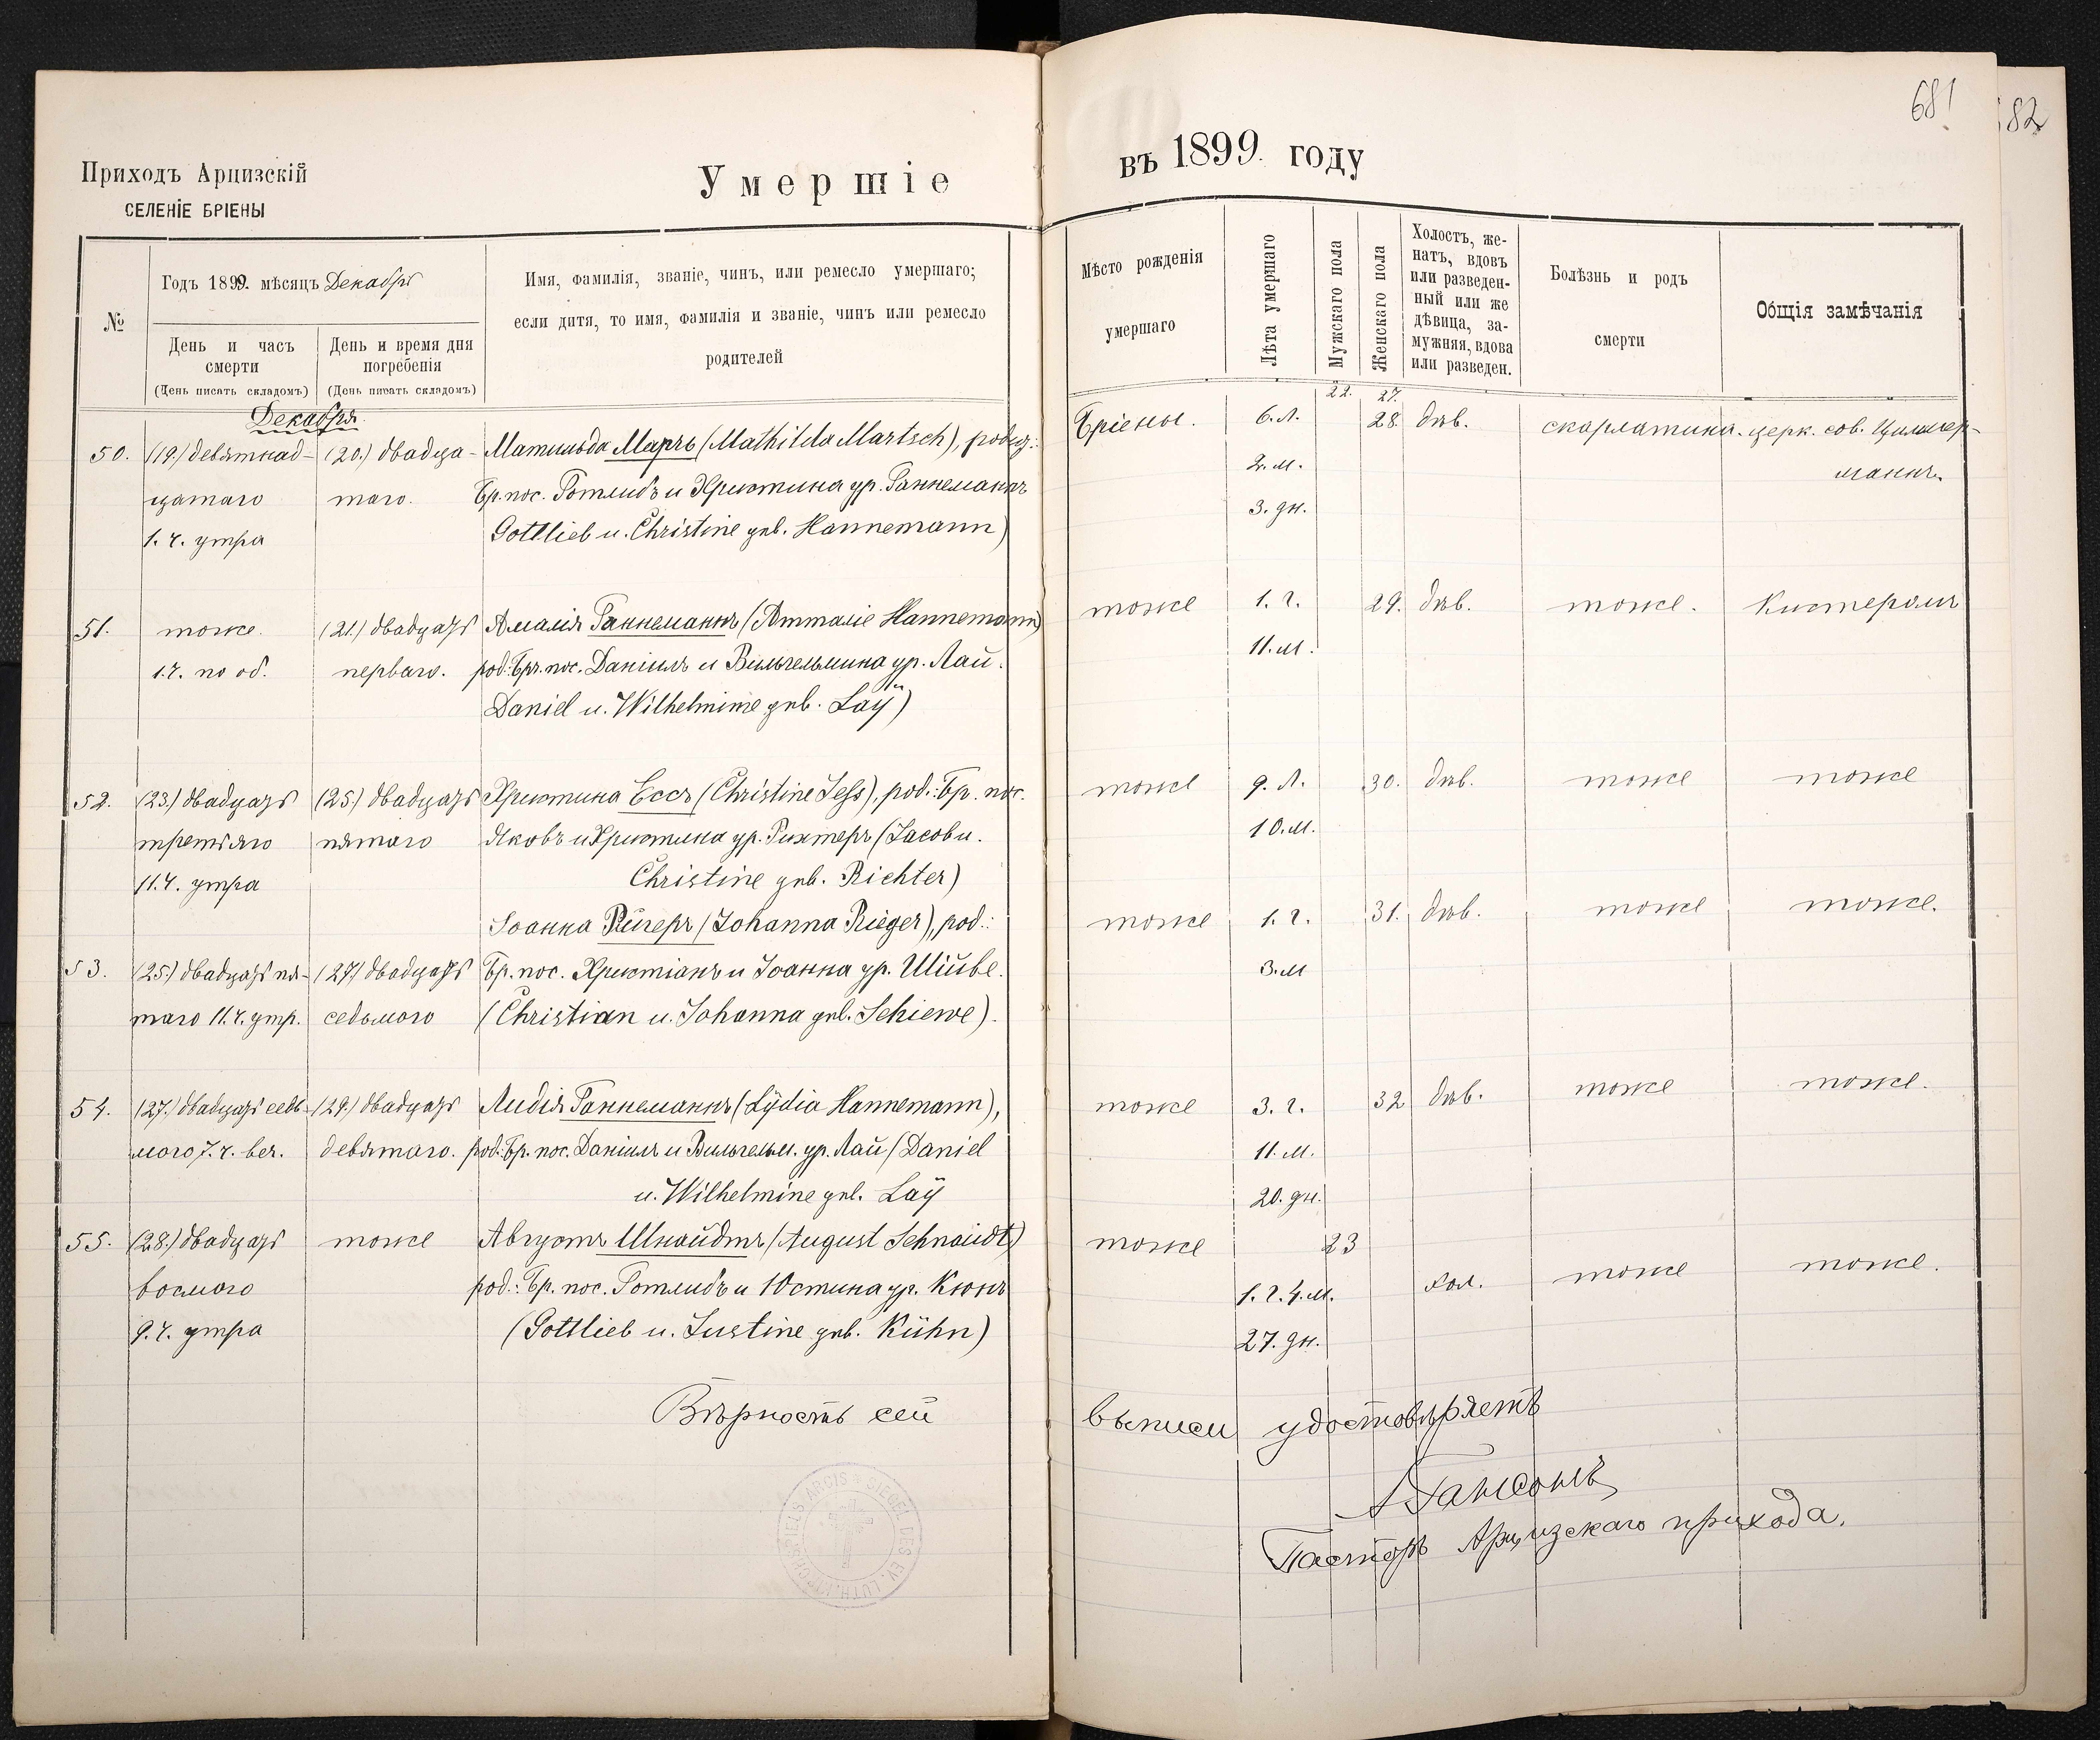 681
82
Приходъ Арцизскій
СЕЛЕНІЕ БРІЕНЫ
Умершіе
въ 1899. году
№
Годъ 1899. мѣсяцъ Декабрь
День и часъ смерти
(День писать складомъ)
День и время дня погребенія
(День писать складомъ)
Имя, фамилія, званіе, чинъ, или ремесло умершаго;
если дитя, то имя, фамилія и званіе, чинъ или ремесло
родителей
Мѣсто рожденія
умершаго
Лѣта умершаго
Мужскаго пола
Женскаго пола
Холостъ, же-
натъ, вдовъ
или разведен-
ный или же
дѣвица, за-
мужняя, вдова
или разведен.
Болѣзнь и родъ
смерти
Общія замѣчанія
22. 27.
Декабря.
50. (19.) девятнад- (20.) двадца- Матильда Марчъ (Mathilda Martsch), родит.: Бріены. 6. л. 28. дѣв. скарлатина. церк. сов. Циммер-
цатаго таго. Бр. пос. Готлибъ и Христина ур. Ганнеманнъ 2. м. маннъ.
1. ч. утра Gottlieb u. Christine geb. Hannemann) 3. дн.
51. тоже. (21.) двадцать Амалія Ганнеманнъ (Ammalie Hannemann) тоже 1. г. 29. дѣв. тоже. Кистеромъ
1. ч. по об. перваго. род.: Бр. пос. Даніилъ и Вильгельмина ур. Лай. 11. м.
Daniel u. Wilhelmine geb. Laÿ)
52. (23.) двадцать (25.) двадцать Христина Ессъ (Christine Jess), род.: Бр. пос. тоже 9. л. 30. дѣв. тоже тоже
третьяго пятаго Яковъ и Христина ур. Рихтеръ (Jacob u. 10. м.
11. ч. утра Christine geb. Richter)
Іоанна Ригеръ (Johanna Rieger), род.: тоже 1. г. 31. дѣв. тоже тоже.
53. (25.) двадцать пя- (27.) двадцать Бр. пос. Христіанъ и Іоанна ур. Шиве. 3. м
таго 11. ч. утр. седьмого (Christian u. Johanna geb. Schiewe).
54. (27.) двадцать седь- (29.) двадцать Лидія Ганнеманнъ (Lÿdia Hannemann), тоже 3. г. 32 дѣв. тоже тоже.
мого 7. ч. веч. девятаго. род.: Бр. пос. Даніилъ и Вильгельм. ур. Лай (Daniel 11. м.
u. Wilhelmine geb. Laÿ 20. дн.
55. (28.) двадцать тоже Августъ Шнайдтъ (August Schnaidt) тоже 23
восмого род.: Бр. пос. Готлибъ и Юстина ур. Кюнъ 1. г. 4. м. хол. тоже тоже.
9. ч. утра (Gottlieb u. Justine geb. Kühn) 27. дн.
Вѣрность сей выписи удостовѣряетъ
Пасторъ Арцизскаго прихода.
SIEGEL DES EV. LUTH. KIRCHSPIELS ARCIS